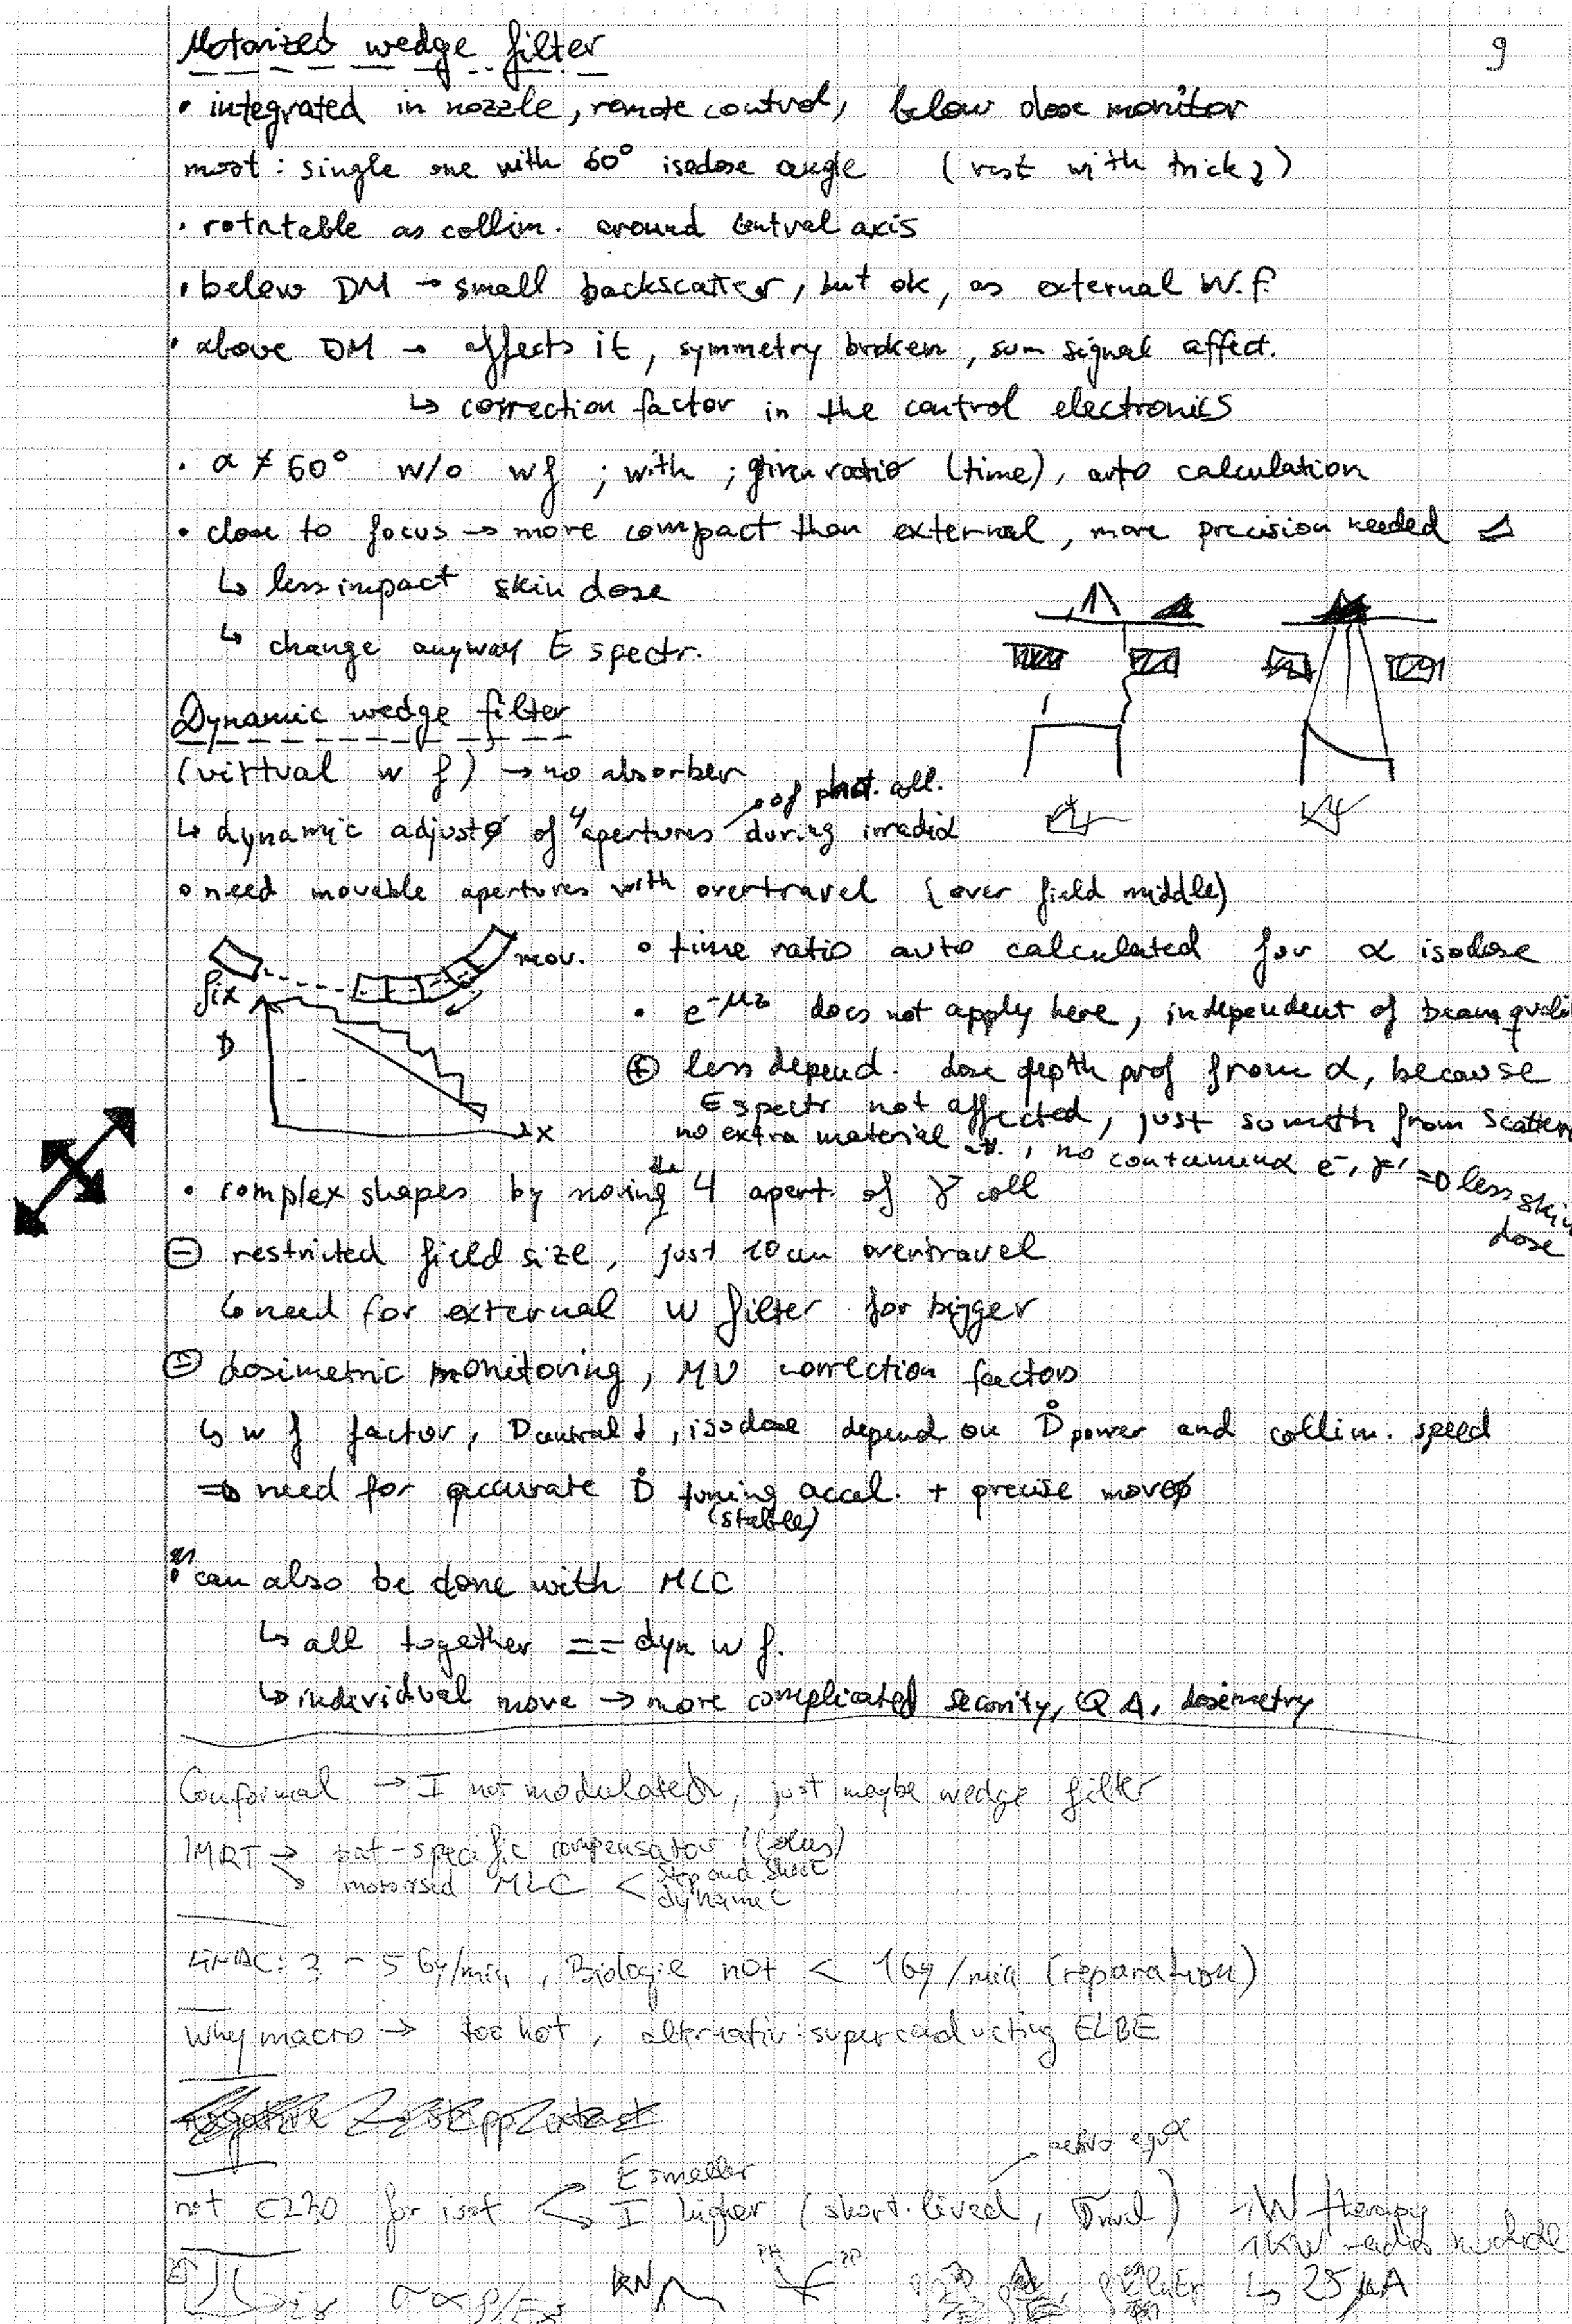 Motorized wedge filter
9
• integrated in nozzle, remote control, below dose monitor
most : single one with 60° isodose angle (rest with trick 2)
• rotatable as collim. around central axis
• below DM → small backscatter, but ok, as external W.f.
• above DM → affects it, symmetry broken, sum signal affect.
↳ correction factor in the control electronics
• α ≠ 60° w/o wf ; with ; given ratio (time), auto calculation
• close to focus → more compact than external, more precision needed
↳ less impact skin dose
↳ change anyway E spectr.
Dynamic wedge filter
(virtual w f) → no absorber
of phot. coll.
↳ dynamic adjust of 4 apertures during irradia
• need movable apertures with overtravel (over field middle)
mov.
fix
D
x
• time ratio auto calculated for α isodose
• e^-μz does not apply here, independent of beam quali
⊕ less depend. dose depth prof from α, because
E spectr not affected, just someth from scatter
no extra material , no contamina e⁻, γ' ⇒ less skin
dose
• complex shapes by moving the 4 apert. of γ coll
⊖ restricted field size, just 10 cm overtravel
↳ need for external w filter for bigger
⊖ dosimetric monitoring, MU correction factors
↳ w f factor, D central ↓, isodose depend on Ḋ power and collim. speed
⇒ need for accurate Ḋ tuning accel. + precise move
(stable)
• can also be done with MLC
↳ all together == dyn w f.
↳ individual move → more complicated security, QA, dosimetry
Conformal → I not modulated, just maybe wedge filter
IMRT → pat-specific compensator
↘ motorised MLC < step and shoot
dynamic
LINAC: 3 - 5 Gy/min, Biologie not < 1 Gy/min (reparation)
Why macro → too hot, alternativ: superconducting ELBE
E smaller
not C230 for isot < I higher (short-lived, )
1W therapy
1KW radionuclide
KN
PP
↳ 25 μA